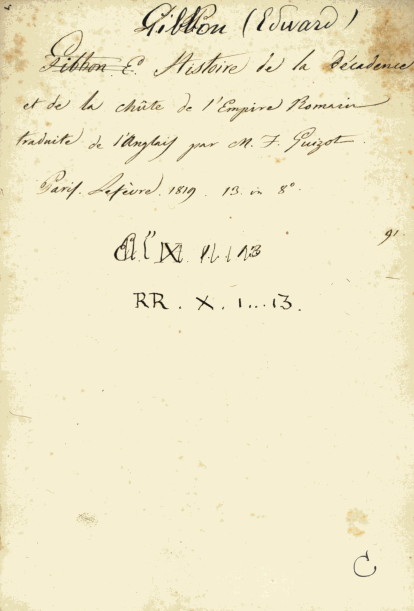 Gibbon (Edward)
Gibbon E. Histoire de la décadence
et de la chûte de l'Empire Romain
traduite de l'Anglais par M. F. Guizot.
Paris. Lefèvre. 1819. 13. in 8°
91
RR. X. 1...13.
C